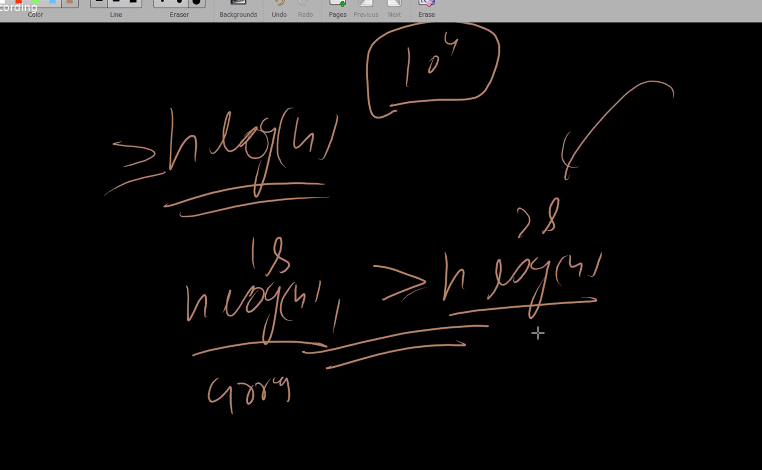 cording
Color Line Eraser Backgrounds Undo Redo Pages Previous Next Erase
10^4
≥ n log(n)
1s >s
n log(n) > n log(n)
array